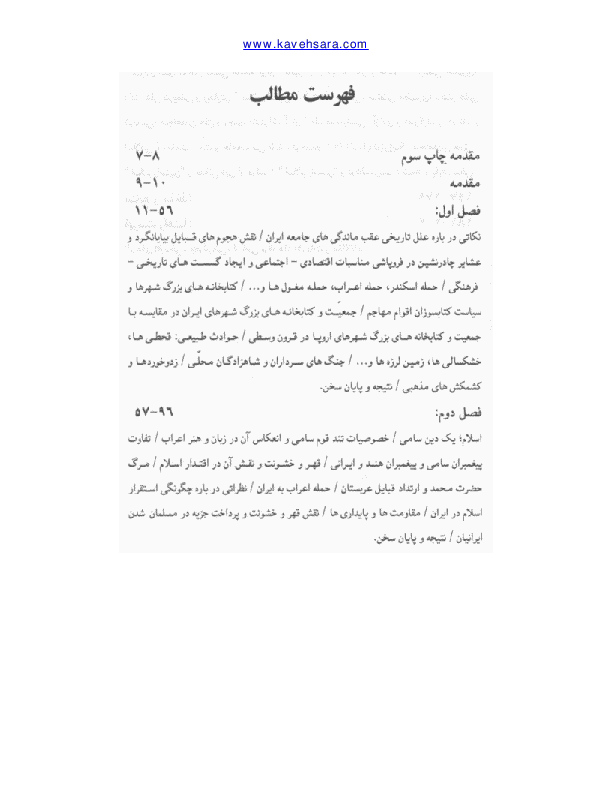 www.kavehsara.com
فهرست مطالب
مقدمه چاپ سوم ۷–۸
مقدمه ۹–۱۰
فصل اول: ۱۱–۵۶
نکاتی در باره علل تاریخی عقب ماندگی های جامعه ایران / نقش هجوم های قبایل بیابانگرد و
عشایر چادرنشین در فروپاشی مناسبات اقتصادی – اجتماعی و ایجاد گسست های تاریخی –
فرهنگی / حمله اسکندر، حمله اعراب، حمله مغول ها و... / کتابخانه های بزرگ شهرها و
سیاست کتابسوزان اقوام مهاجم / جمعیّت و کتابخانه های بزرگ شهرهای ایران در مقایسه با
جمعیت و کتابخانه های بزرگ شهرهای اروپا در قرون وسطی / حوادث طبیعی: قحطی ها،
خشکسالی ها، زمین لرزه ها و... / جنگ های سرداران و شاهزادگان محلّی / زدوخوردها و
کشمکش های مذهبی / نتیجه و پایان سخن.
فصل دوم: ۵۷–۹۶
اسلام؛ یک دین سامی / خصوصیات تند قوم سامی و انعکاس آن در زبان و هنر اعراب / تفاوت
پیغمبران سامی و پیغمبران هند و ایرانی / قهر و خشونت و نقش آن در اقتدار اسلام / مرگ
حضرت محمد و ارتداد قبایل عربستان / حمله اعراب به ایران / نظراتی در باره چگونگی استقرار
اسلام در ایران / مقاومت ها و پایداری ها / نقش قهر و خشونت و پرداخت جزیه در مسلمان شدن
ایرانیان / نتیجه و پایان سخن.